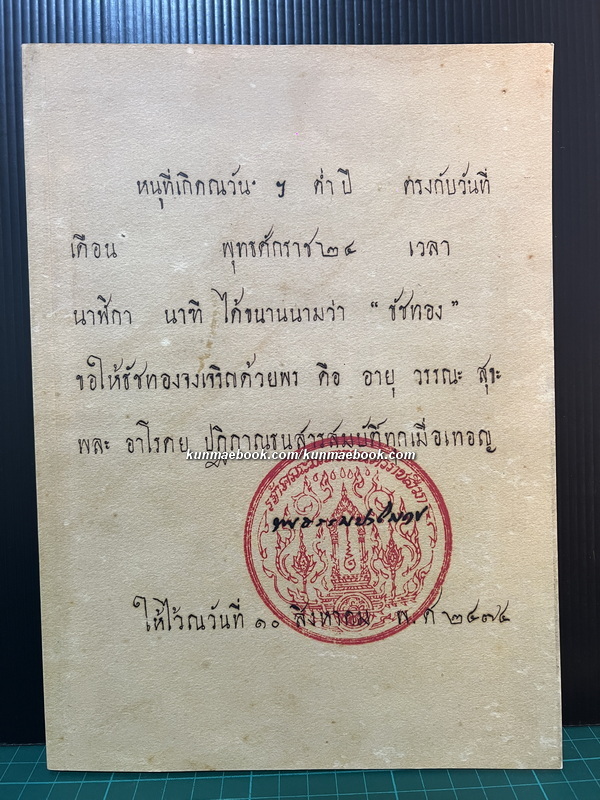 หนูที่เกิดณวัน ฯ ค่ำ ปี ตรงกับวันที่
เดือน พุทธศักราช ๒๔ เวลา
นาฬิกา นาที ได้ขนานนามว่า “ธัชทอง”
ขอให้ธัชทองจงเจริญด้วยพร คือ อายุ วรรณะ สุขะ
พละ อาโรคย ปฏิภาณธนสารสมบัติทุกเมื่อเทอญ
kunmaebook.com/kunmaebook.com
ให้ไว้ณวันที่ ๑๐ สิงหาคม พ.ศ ๒๔๗๔